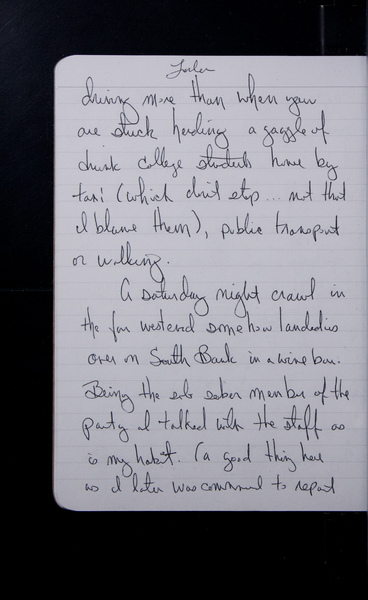 driving more than when your
are stuck herding a gaggle of
drunk college students home by
taxi (which don't stop... not that
I blame them), public transport
or walking.
A saturday night crawl in
the far westered somehow landed us
over on South Bank in a wine bar.
Being the sober member of the
party I talked with the staff as
is my habit. (a good thing here
as I later was to repeat